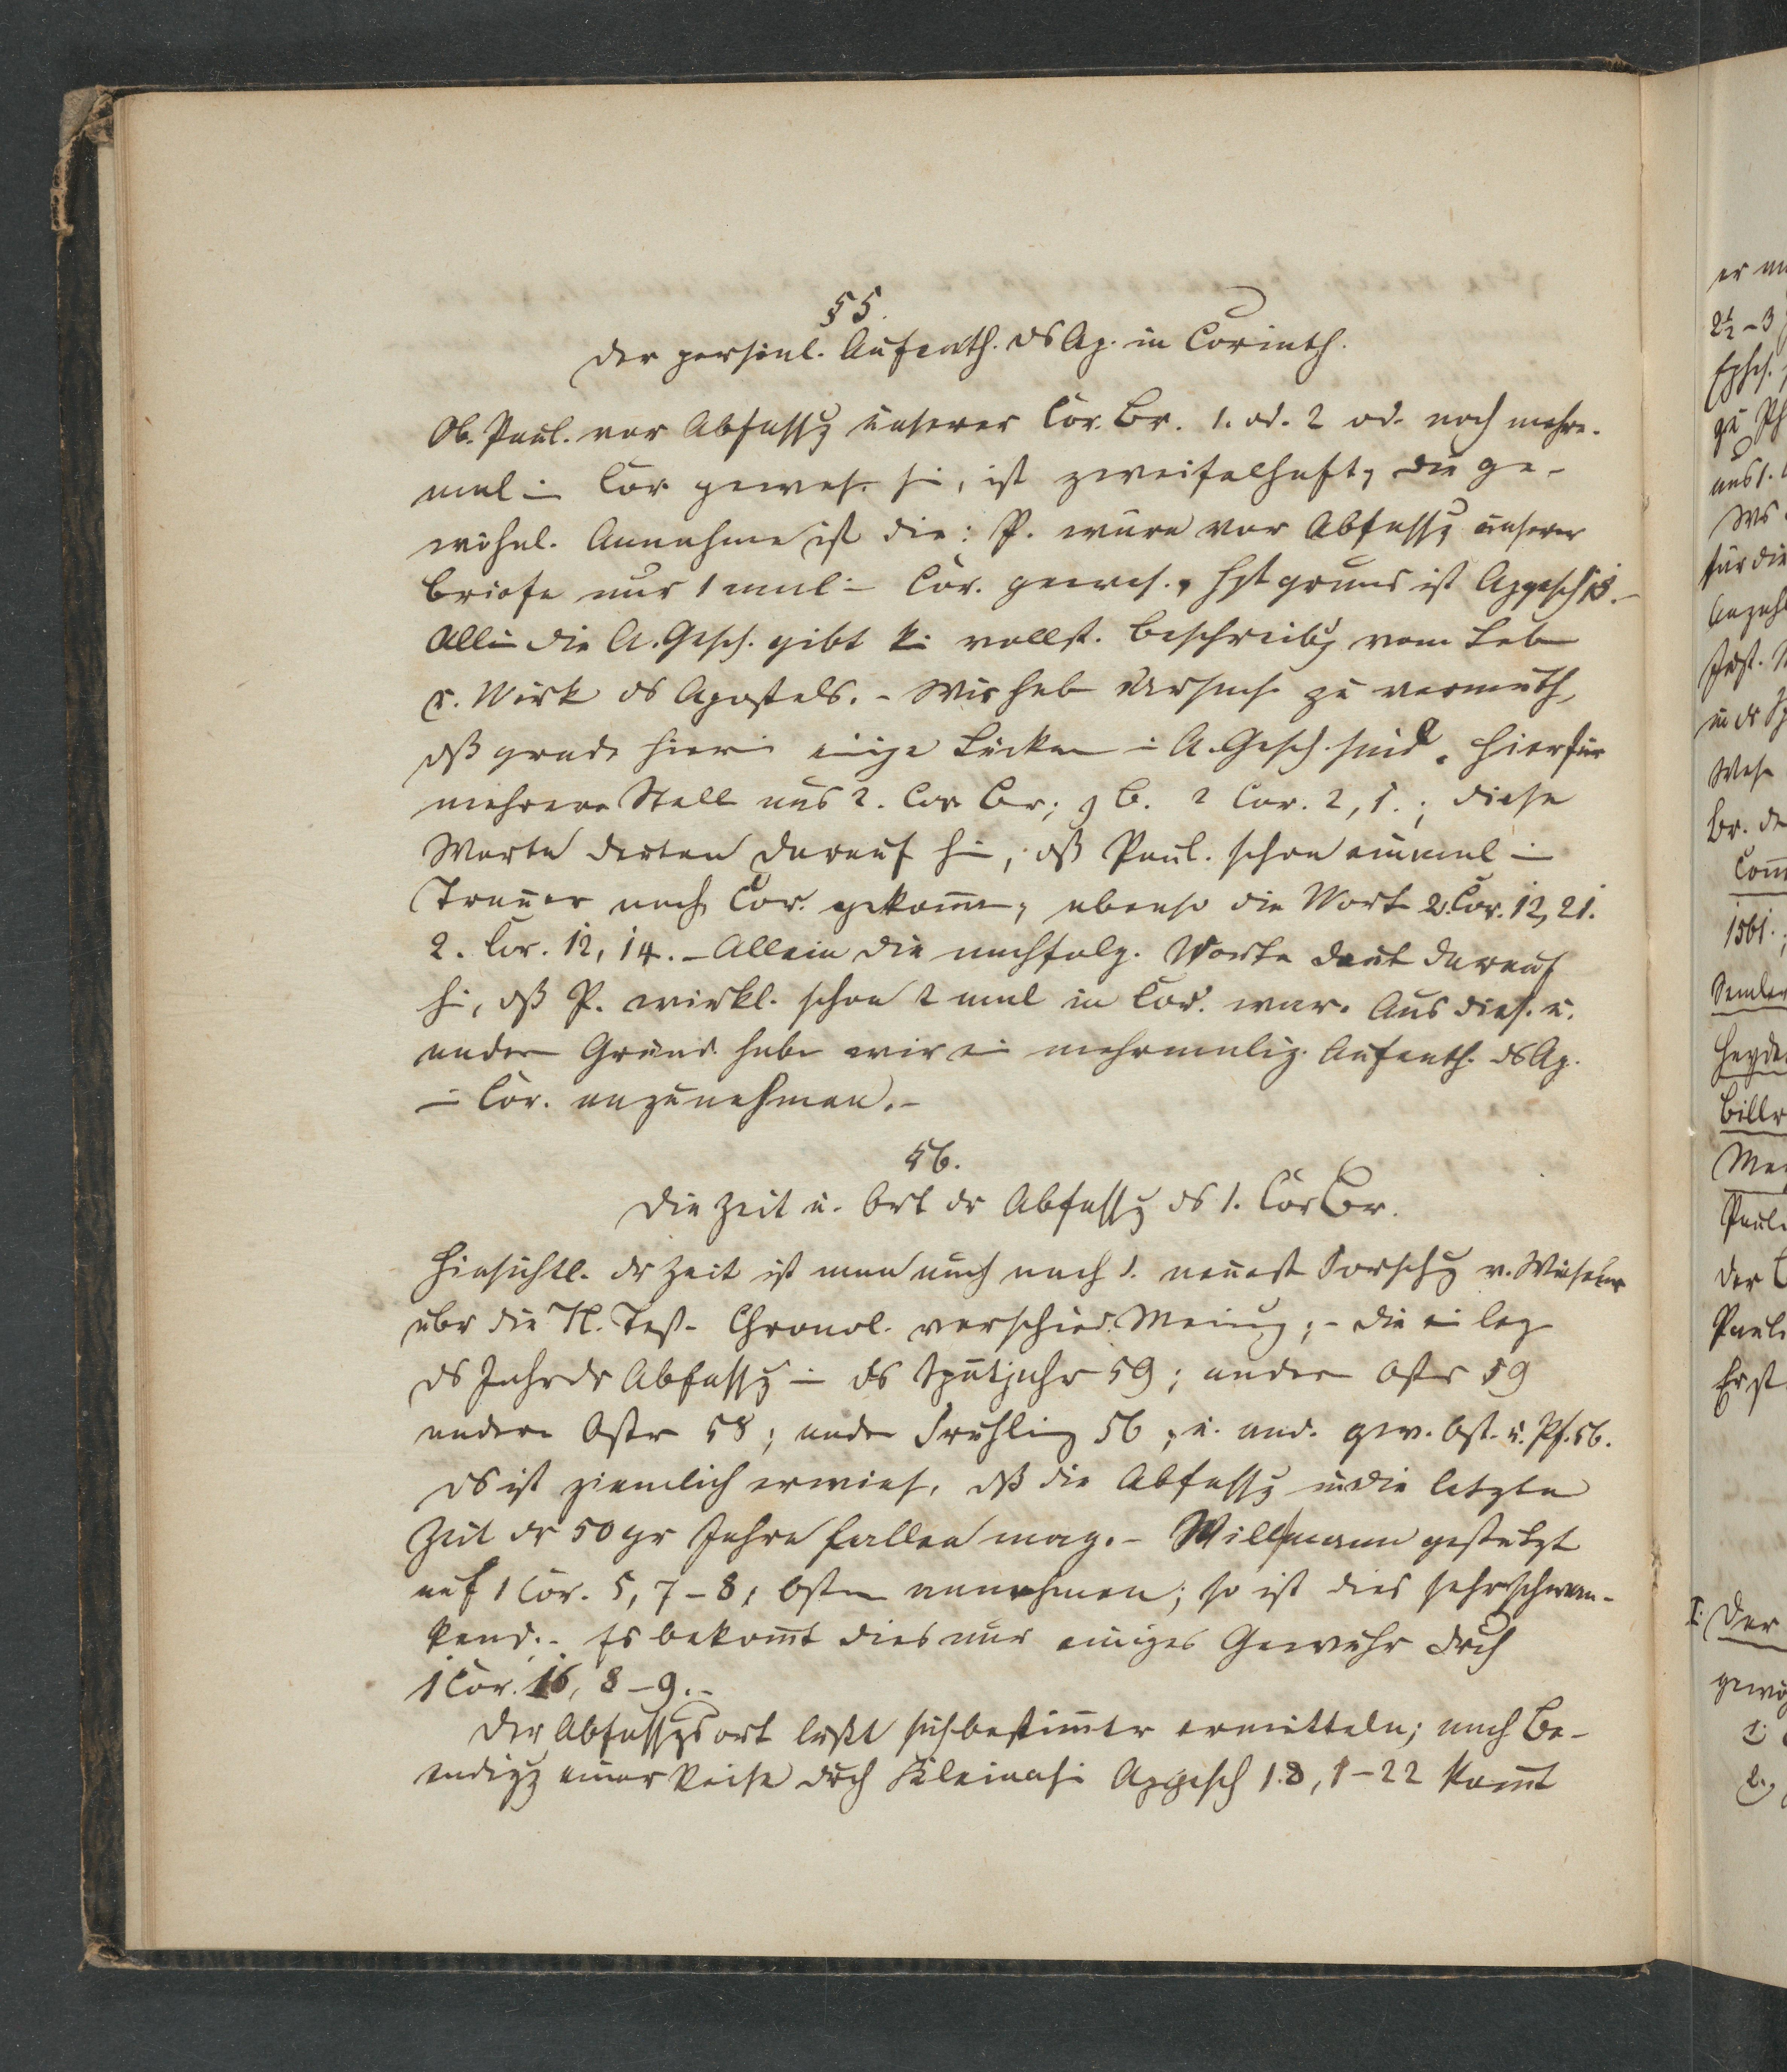 § 5.
Der persönl. Aufenth. ds Ap. in Corinth.
Ob. Paul. vor Abfassg unserer Cor. Br. 1. od. 2 od. noch mehre-
mal in Cor. gewes. sei, ist zweifelhaft, die ge-
wöhnl. Annahme ist die: P. wäre vor Abfassg unserer
Briefe nur 1 mal in Cor. gewes., Hptgrund ist Apgesch 18. –
Allein die A. Gesch. gibt kei vollst. Beschreibg vom Leben
u. Wirk ds Apostels. – Wir haben Ursache zu vermuth,
dß grade hierin einige Lücken in A. Gesch. sind. Hierfür
mehrere Stell aus 2. Cor Br; z B. 2 Cor. 2, 1.; diese
Worte deuten darauf hin, dß Paul. schon einmal in
Trauer nach Cor. gekomen, ebenso die Wort 2. Cor. 12, 21.
2. Cor. 12, 14. – Allein die nachfolg. Worte deut darauf
hin, dß P. wirkl. schon 2 mal in Cor. war. Aus dies. u.
andern Gründ. haben wir ein mehrmalig. Aufenth. ds Ap.
in Cor. anzunehmen. –
§ 6.
Die Zeit u. Ort dr Abfassg ds 1. Cor Br.
Hinsichtl. dr Zeit ist man auch nach d. neuest Forschg v. Wieseler
über die N. Test. Chronol. verschied. Meinug; – die ein legen
ds Jahr dr Abfassg in ds Spätjahr 59; andere Ostr 59
andere Ostr 58; andre Frühling 56, u. and. zw. Ost. u. Pf. 56.
Es ist ziemlich erwies., dß die Abfassg in die letzte
Zeit dr 50 gr Jahre fallen mag. – Will man gestützt
auf 1 Cor. 5, 7 – 8, Ostern annehmen; so ist dies sehr schwan-
kend. – Es bekomt dies nur einiges Gewähr drch
1 Cor. 16, 8 – 9. –
Der Abfassgsort läßt sich bestimmtr ermitteln; nach Be-
endigg einer Reise drch Kleinasi Apgesch 18, 1 – 22 komt